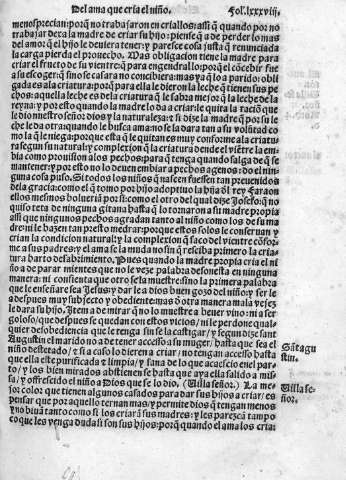 Del ama que cria el niño. Fol. lxxxviij.
menosprecian: porq̃ no trabajaron en criallos: assi q̃ quando por no
trabajar dexa la madre de criar su hijo: piense q̃ a de perder lo mas
del amor: q̃ el hijo le deuiera tener: y paresce cosa justa q̃ renunciada
la carga pierda el prouecho. Mas obligacion tiene la madre para
criar el fructo de su vientre q̃ para engendrallo: porq̃ el cõcebir fue
a su escoger: q̃ sino se casara no concibiera: mas ya q̃ lo a parido: obli
gada es a la criatura: porq̃ para ella le dieron la leche q̃ tienen sus pe
chos: aquella leche es de la criatura q̃ le sabra mejor q̃ la leche de la
reyna: y por esto quando la madre lo da a criar: le quita la raciõ que
le dio nuestro señor dios y la naturaleza: t si dize la madre q̃ por su le
che le da otra: quando le busca ama: no se la dara tan a su volũtad co
mo la q̃ le niega: porque esta q̃ le quitan es muy conforme a la criatu
ra segun su natural: y complexion q̃ la criatura dende el viẽtre la em
bia como prouision a los pechos: para q̃ tenga quando salga de q̃ se
mantener: y por esto no lo deuen embiar a pechos agenos: do el nin-
guna cosa puso. Si todos los niños q̃ nascen fuessen tan preuenidos
de la gracia: como el q̃ tomo por hijo adoptiuo la hija dl rey Faraon
ellos mesmos bolueriã por si: como el otro del qual dize Josefo: q̃ no
quiso teta de ninguna gitana hasta q̃ lo tornaron a su madre propia
assi que ningunos pechos agradan tanto al niño como los de su ma
dre: ni le hazen tan presto medrar: porque estos solos le conseruan y
crian la condicion natural: y la complexion q̃ saco del vientre cõfor-
me a sus padres: y el ama se la muda no sin q̃ resciba primero la cria-
tura harto desabrimiento. Pues quando la madre propia cria el ni
ño a de parar mientes que no le veze palabra desonesta en ninguna
manera: ni consienta que otro se la muestre: sino la primera palabra
que le enseñare sea Jesus: y dar le a dios buen gozo del niño: y ser le
a despues muy subjecto y obediente: mas d̃ otra manera mala vejez
le dara su hijo. Item a de mirar q̃ no lo muestre a beuer vino: ni a ser
goloso: que despues se quedan con estos vicios: ni le perdone qual-
quier desobediencia que le tenga sin se la castigar: y segun dize sant
Augustin el marido no a de tener accesso a su muger: hasta que sea el
niño destetado: t si a caso lo dieren a criar: no tengan accesso hasta
que ella este purificada t limpia: y sana de lo que acaescio en el par-
to: y los bien mirados abstienen se hasta que aya ella salido a mis-
sa: y offrescido el niño a Dios que se lo dio. (Villa señor.) La me-
jor color que tienen algunos casados para dar sus hijos a criar: es
pensar que por aquello ternan mas: y permite dios q̃ tengan menos
y no biuã tanto como si los criarã sus madres: y les parezcã tampo
co que les venga duda si son sus hijos: porq̃ quando el ama los cria:
Sãt agu
stin.
Villa se-
ñor.